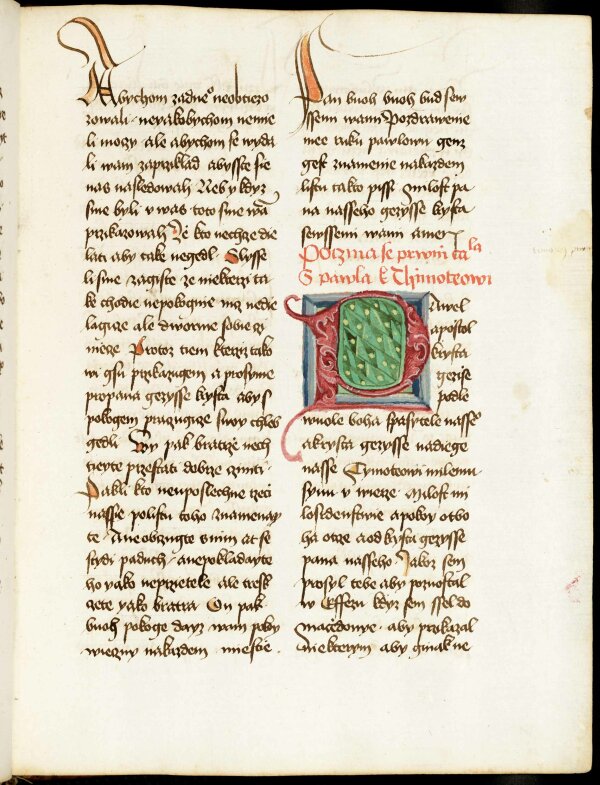 Abychom zadneo neobtiezo
zowali neyakobychom nemie
li mocy ale abychom se wyda
li wam zaprziklad abysste sie
nas nasledowali Neb y kdyz
sme byli v was toto sme wam
przikazowali Ze kto nechze die
lati aby take negedl Slysse
li sme zagiste ze niekterzi ta
ke chodie nepokognie nicz nedie
lagicze ale dworne sobie czi
niecze Protoz tiem kterziz tako
wi gsu przikazugem a prosyme
propana gezysse krysta aby s
pokogem praczugicze swoy chleb
gedli Wy pak bratrze nech
tieyte przestati dobrze czinici
Pakli kto neuposlechne rzeci
nassie polistu toho znamenay
te Aneobczugte s nim at se
stydi paduch anepokladayte
ho yako neprzietele ale tresk
czete yako bratra On pak
buoh pokoge dayz wam pokoy
wieczny nakazdem miestie
Pan buoh buoh bud sew
ssem wami Pozdrawenie
mee ruku pawlowu genz
gest znamenie nakazdem
listu takto pissi Milost pa
na nasseho gezysse krysta
sewssemi wami amen
Poczina se prwni ca la
S pawla k Thimoteowi
Pawel
apostol
krysta
gezise
podle
wuole boha spasytele nasseo
akrysta gezysse nadiege
nasse Tymoteowi milemu
synu v wierze Milost mi
losidenstwie apokoy otbo
ha otcze aod krysta gezysse
pana nasseho Jakoz sem
prosyl tebe aby pozuostal
w Effezu kdyz sem ssel do
macedonye aby przikazal
niekterym aby ginak ne